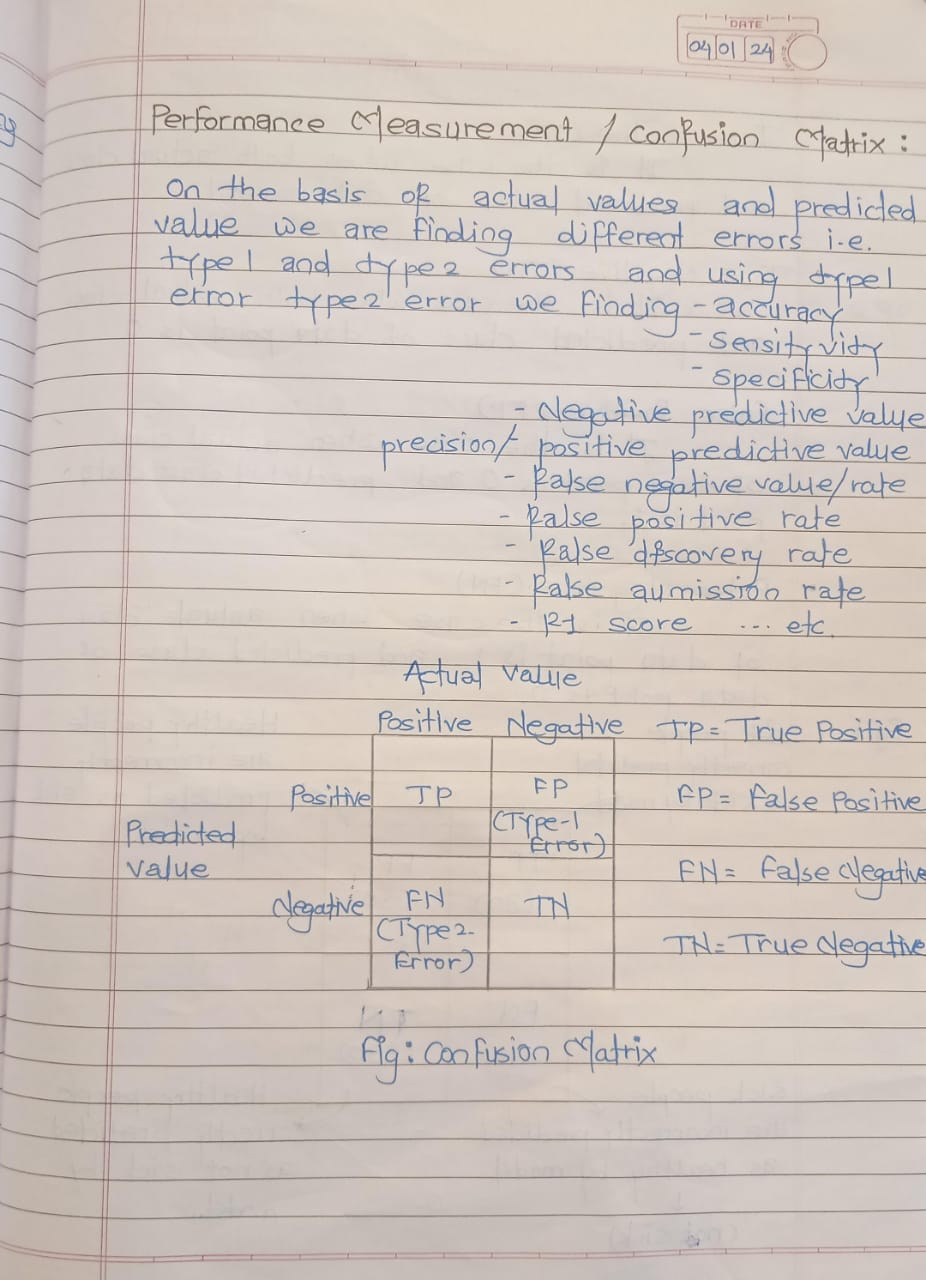 DATE
04 01 24
Performance Measurement / Confusion Matrix :
On the basis of actual values and predicted
value we are finding different errors i.e.
type1 and type2 errors and using type1
error type2 error we finding - accuracy
- Sensityvity
- Specificity
- Negative predictive value
precision/ positive predictive value
- False negative value/rate
- False positive rate
- False discovery rate
- False aumission rate
- F1 score ... etc.
Actual value
Positive Negative TP = True Positive
Positive TP FP FP = False Positive
(Type-1
Error)
Predicted
value
FN = False Negative
Negative FN TN
(Type 2-
Error)
TN = True Negative
Fig : Confusion Matrix